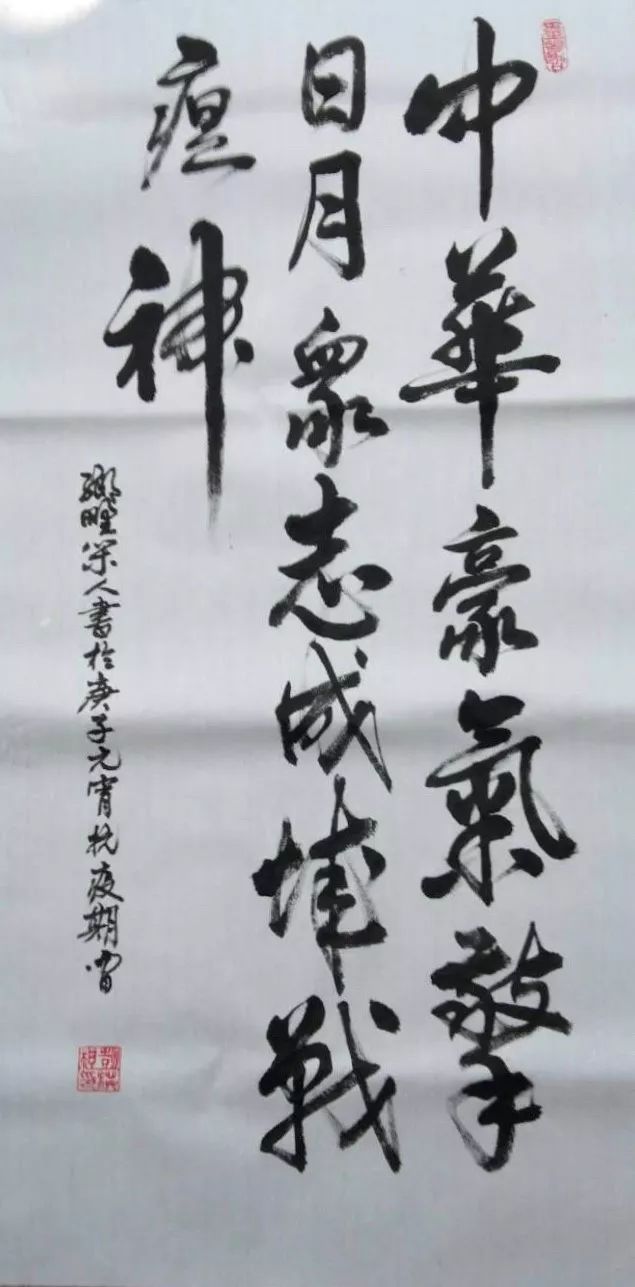 中華豪氣擎
日月衆志成城戰
瘟神
鄉野人書於庚子元宵抗疫期間